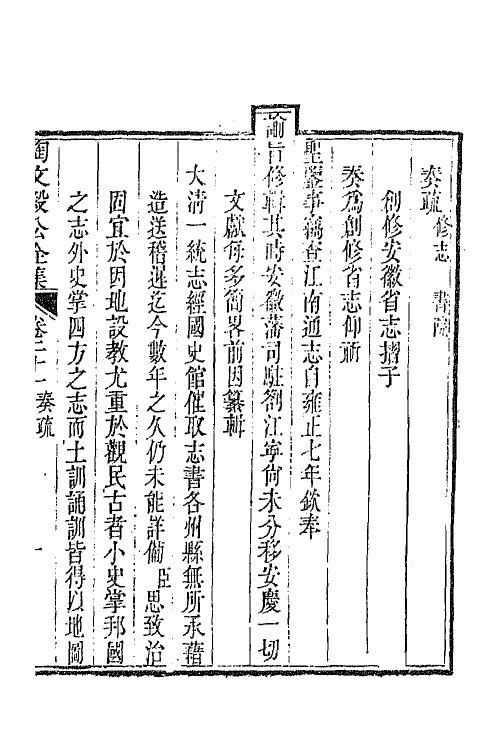 奏疏 修志 書院
創修安徽省志摺子
奏爲創修省志仰祈
聖鑒事竊查江南通志自雍正七年欽奉
諭旨修輯其時安徽藩司駐劄江寧尚未分移安慶一切
文獻每多簡畧前因纂輯
大清一統志經國史館催取志書各州縣無所承藉
造送稽遲迄今數年之久仍未能詳備臣思致治
固宜於因地設教尤重於觀民古者小史掌邦國
之志外史掌四方之志而土訓誦訓皆得以地圖
陶文毅公全集 卷二十一 奏疏 一